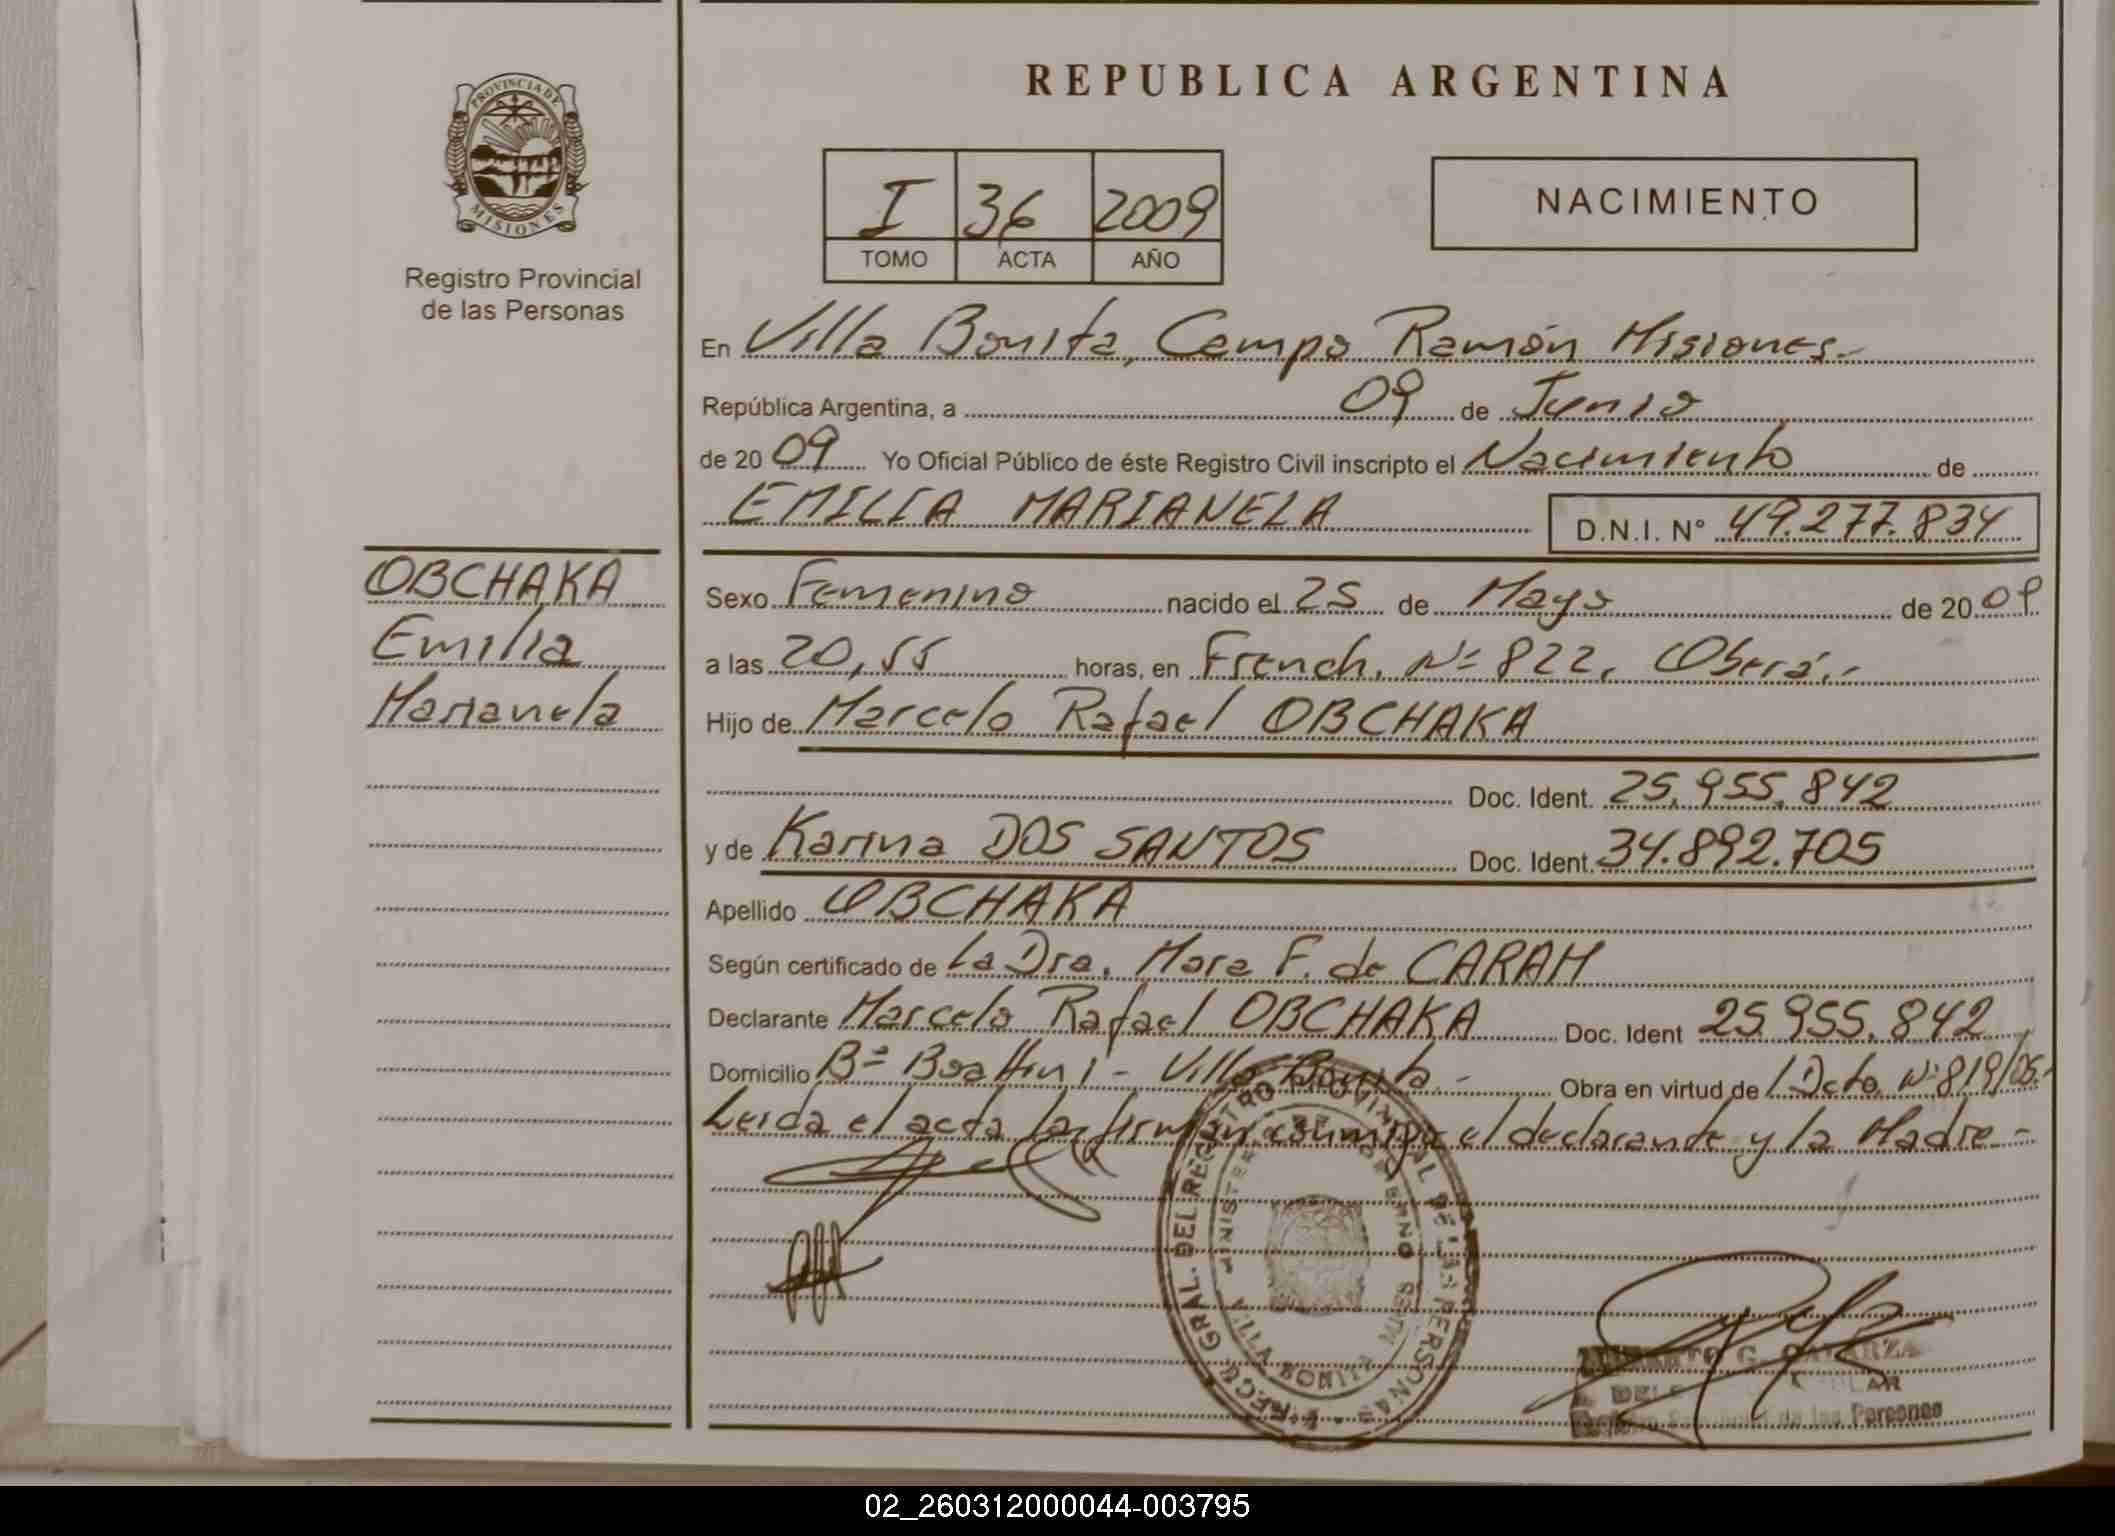 PROVINCIA DE
MISIONES
Registro Provincial
de las Personas
REPUBLICA ARGENTINA
I 36 2009
TOMO ACTA AÑO
NACIMIENTO
En Villa Bonita, Campo Ramón Misiones.-
República Argentina, a 09 de Junio
de 2009 Yo Oficial Público de éste Registro Civil inscripto el Nacimiento de
EMILIA MARIANELA D.N.I. Nº 49.277.834
OBCHAKA
Emilia
Marianela
Sexo Femenino nacido el 25 de Mayo de 2009
a las 20,55 horas, en French, Nº 822, Oberá.-
Hijo de Marcelo Rafael OBCHAKA
Doc. Ident. 25.955.842
y de Karina DOS SANTOS Doc. Ident. 34.892.705
Apellido OBCHAKA
Según certificado de La Dra. Mara F. de CARAM
Declarante Marcelo Rafael OBCHAKA Doc. Ident 25.955.842
Domicilio Bº Boattini - Villa Bonita.- Obra en virtud de Dcto. Nº 819/05.-
Leida el acta la firman conmigo el declarante y la Madre.-
GRAL. DEL REGISTRO PROVINCIAL DE LAS PERSONAS
MINISTERIO DE GOBIERNO
VILLA BONITA
G. GALARZA
de las Personas
02_260312000044-003795